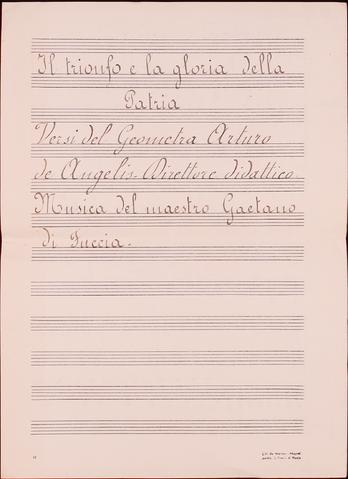 Il trionfo e la gloria della
Patria
Versi del Geometra Arturo
de Angelis - Direttore didattico.
Musica del maestro Gaetano
di Tuccia.